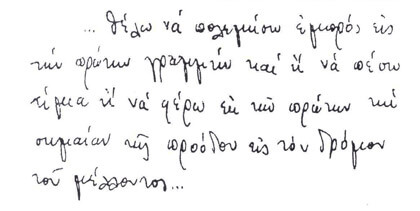 ... θέλω νά πολεμήσω ἐμπρός εἰς
τήν πρώτην γραμμήν καί ἤ νά πέσω
τίμια ἤ νά φέρω ἐκ τῶν πρώτων τήν
σημαίαν τῆς προόδου εἰς τόν δρόμον
τοῦ μέλλοντος...